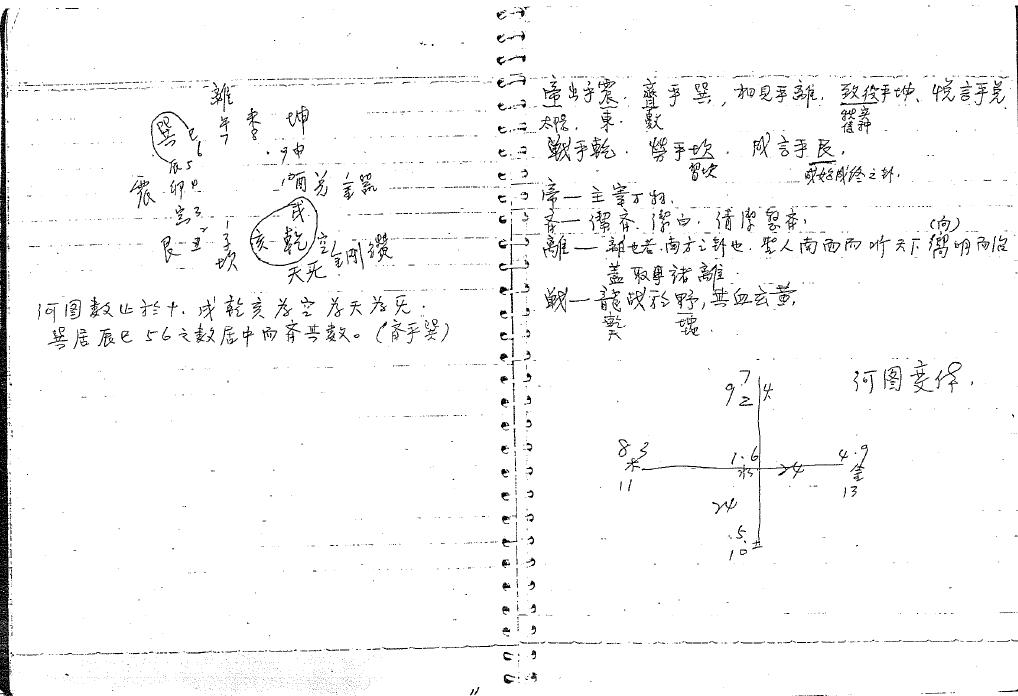 離
巽 巳 午 未 坤
6 7
辰 5 9 申
震 卯 酉 兌 金
3 戌
艮 丑 2 1 子 亥 乾 空 金剛鑽
坎 天死
河图數止於十，戌乾亥為空為天為死．
巽居辰巳56之數居中而齊其數。(齊乎巽)
帝出乎震．齊乎巽，相見乎離．致役乎坤．悅言乎兌
太陽． 東． 數
戰乎乾．勞乎坎．成言乎艮．
習坎 成始成終之卦．
帝—主宰万物．
齐—潔齐．潔白．清潔整齐．
(向)
離—離也者．南方之卦也．聖人南面而听天下嚮明而治
蓋取專諸離．
戰—龍战於野，其血玄黃，
乾 坤
河图变体．
7
9 2 火
8 3 1.6 4.9
木 水 24 金
11 13
24
5
10 土
11